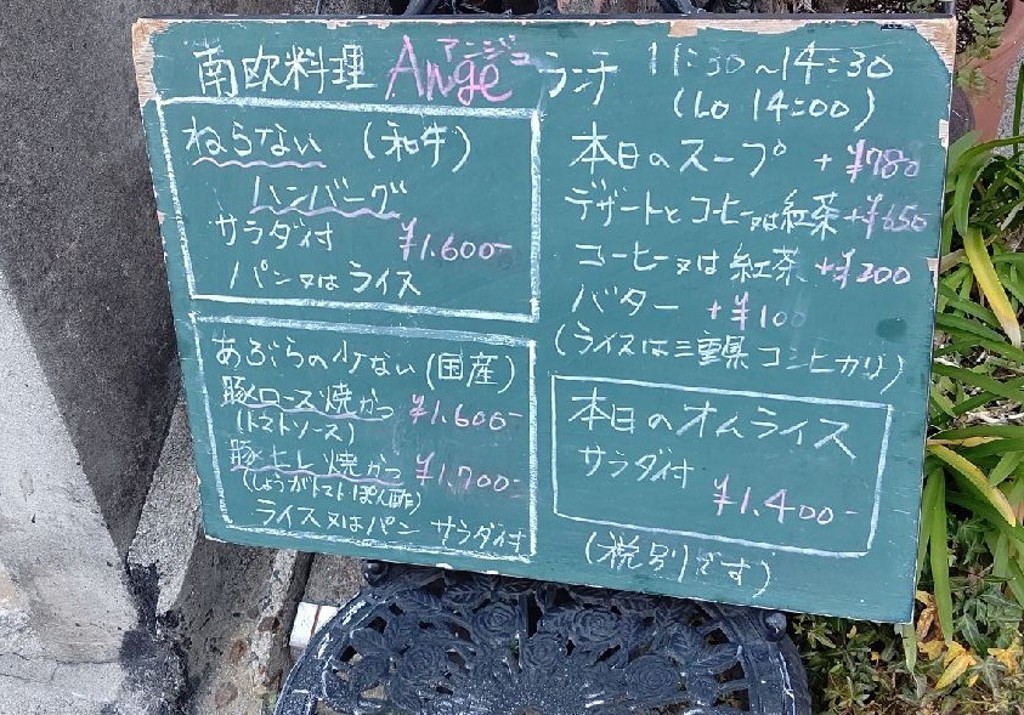 南欧料理 Ange アンジュ ランチ 11:30~14:30
(LO 14:00)
ねらない (和牛)
ハンバーグ
サラダ付 ¥1.600-
パン又はライス
あぶらの少ない (国産)
豚ロース焼かつ ¥1.600-
(トマトソース)
豚ヒレ焼かつ ¥1.700-
(しょうがトマトぽん酢)
ライス又はパン サラダ付
本日のスープ +¥780
デザートとコーヒー又は紅茶+¥650
コーヒー又は紅茶 +¥200
バター +¥100
(ライスは三重県コシヒカリ)
本日のオムライス
サラダ付
¥1.400-
(税別です)